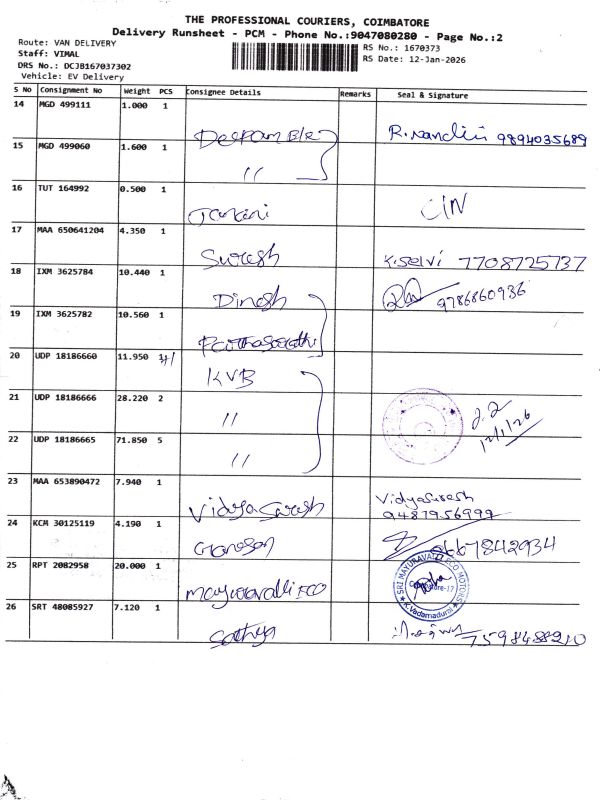 THE PROFESSIONAL COURIERS, COIMBATORE
Delivery Runsheet - PCM - Phone No.:9047080280 - Page No.:2
Route: VAN DELIVERY
Staff: VIMAL
DRS No.: DCJB167037302
Vehicle: EV Delivery
RS No.: 1670373
RS Date: 12-Jan-2026
S No Consignment No Weight PCS Consignee Details Remarks Seal & Signature
14 MGD 499111 1.000 1 R. Nandini 9894035689
15 MGD 499060 1.600 1 "
16 TUT 164992 0.500 1 Janani
17 MAA 650641204 4.350 1 Suresh K. Selvi 7708725737
18 IXM 3625784 10.440 1 Dinesh 9786860936
19 IXM 3625782 10.560 1 Parthasarathi
20 UDP 18186660 11.950 1 KVB
21 UDP 18186666 28.220 2 "
22 UDP 18186665 71.850 5 "
12/1/26
23 MAA 653890472 7.940 1 Vidya Suresh Vidya Suresh
9487956999
24 KCM 30125119 4.190 1 Ganesan 9667842934
25 RPT 2082958 20.000 1 Mayuravalli ECO
SRI MAYURAVALLI ECO MOTORS
K.Vadamadurai
26 SRT 48085927 7.120 1 Sathya 7598488210